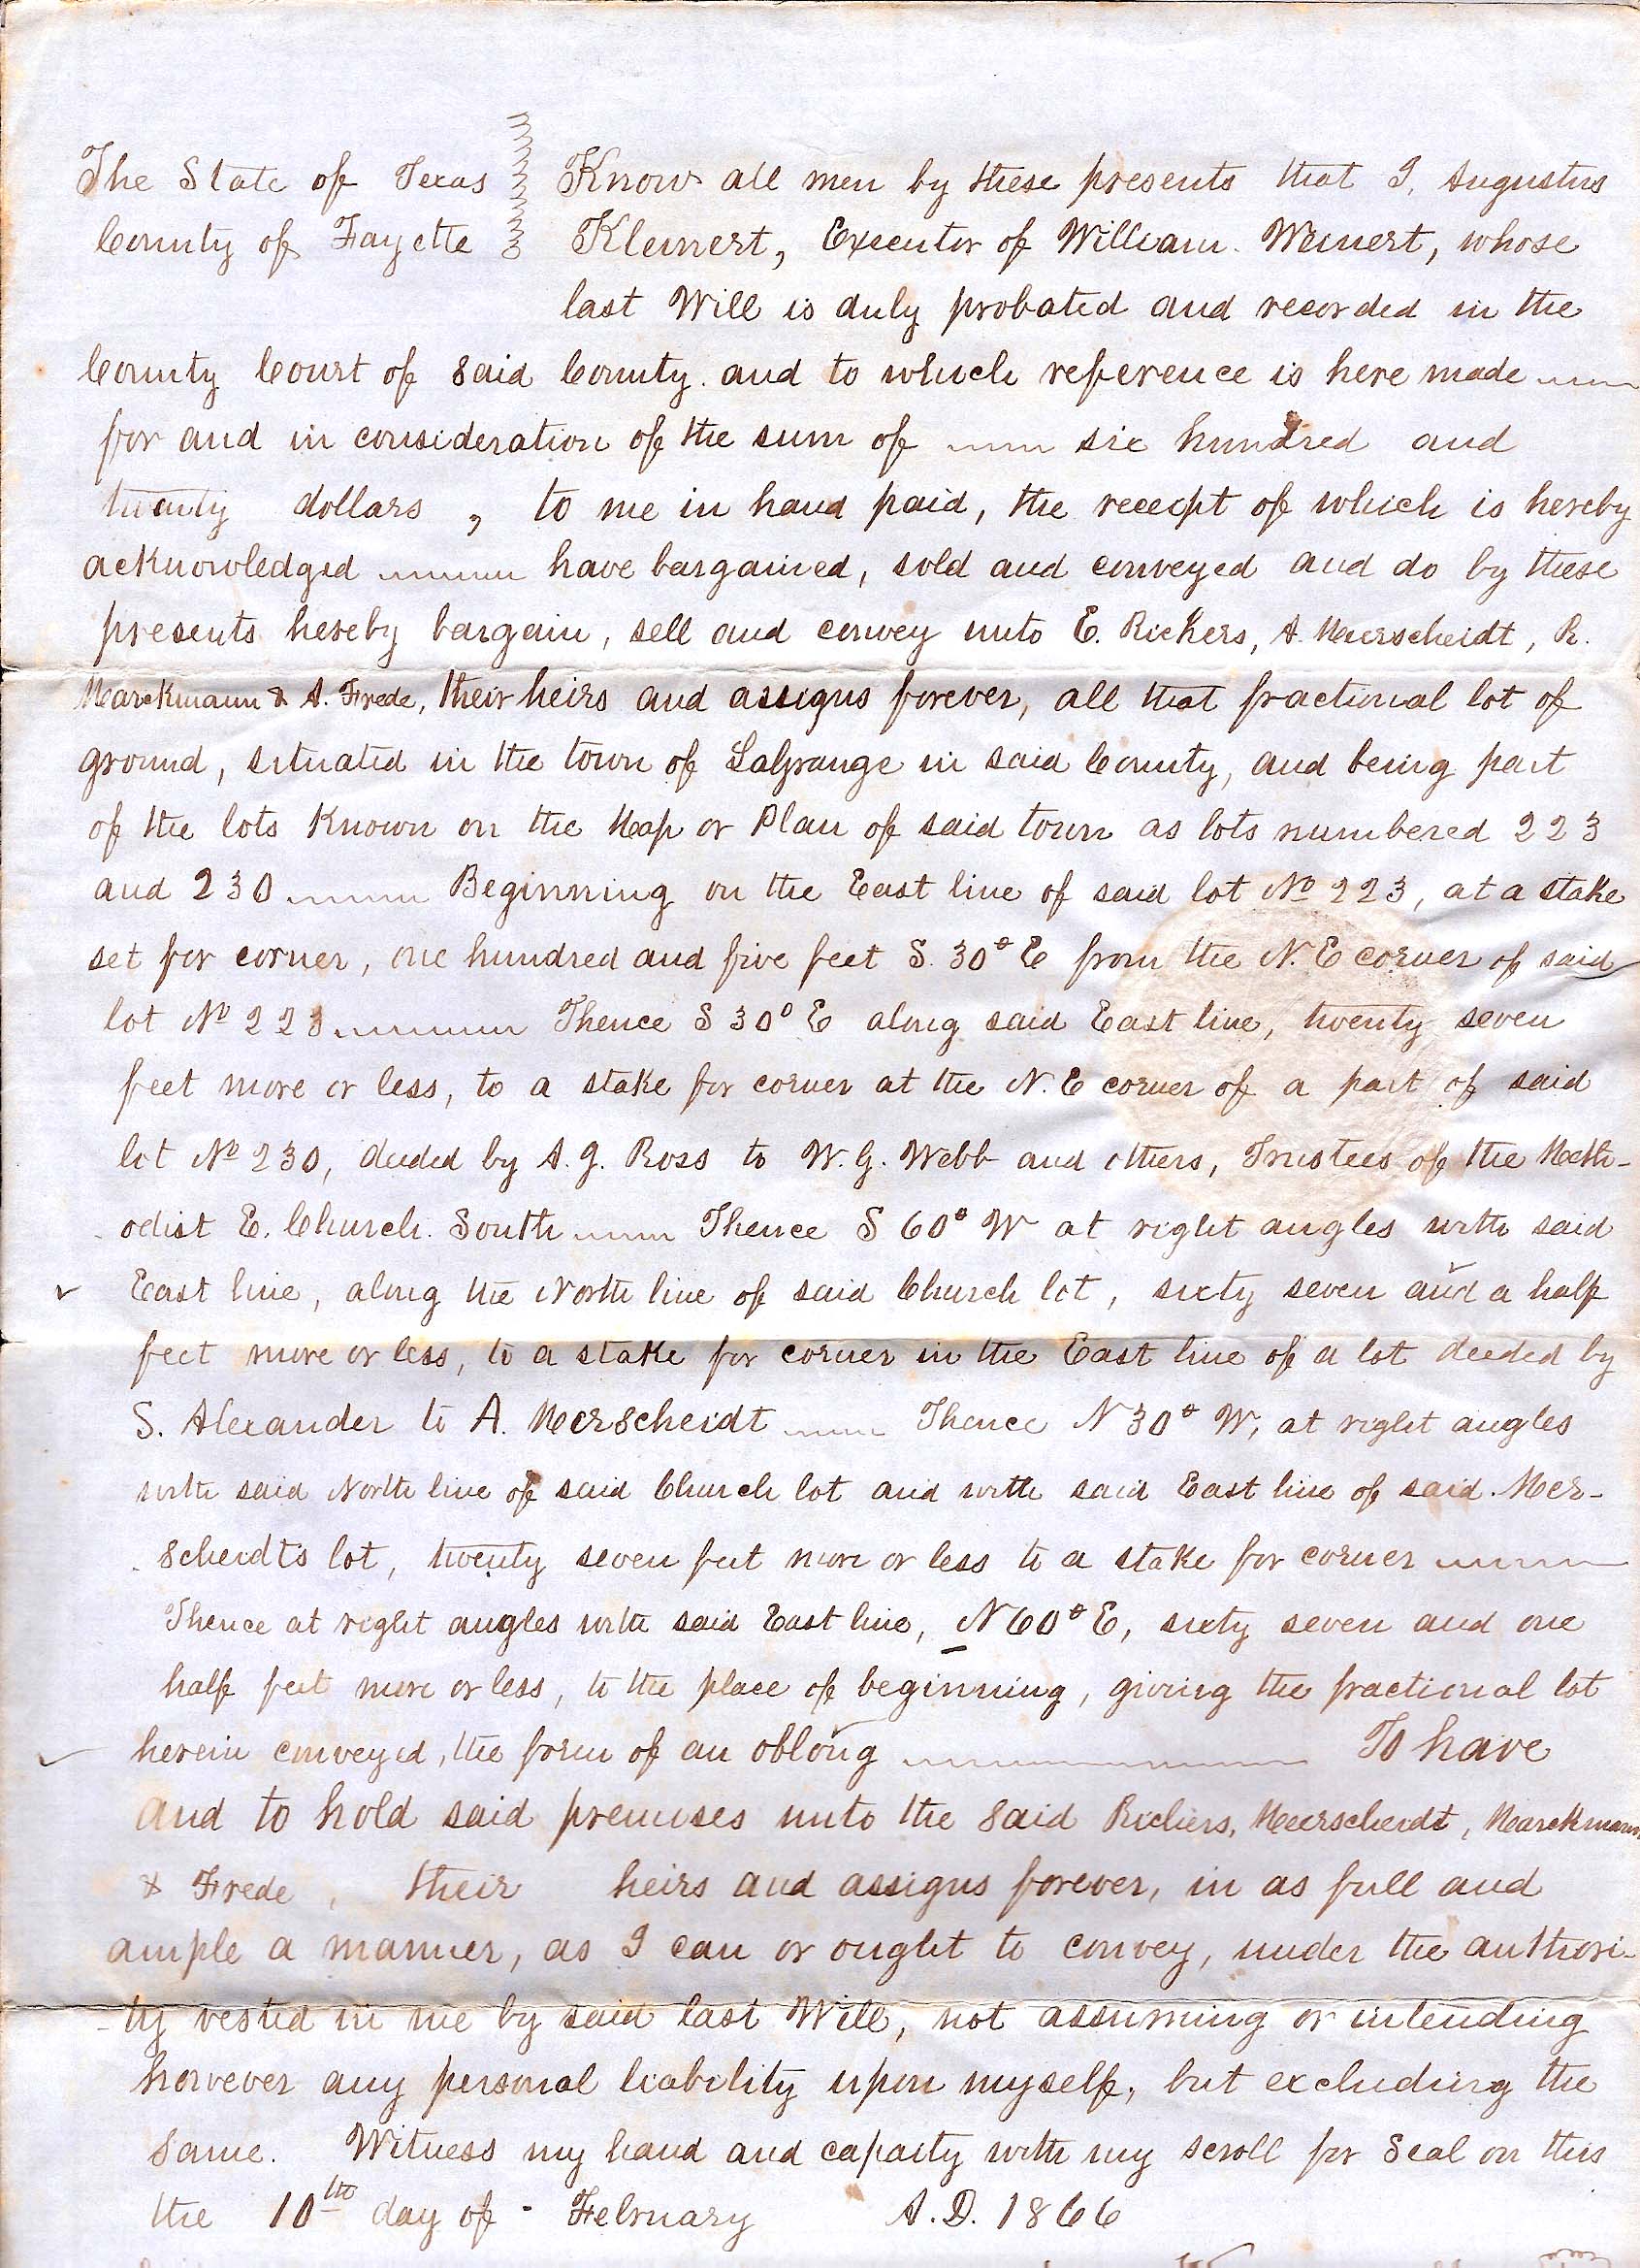 The State of Texas Know all men by these presents that I, Augustus
County of Fayette Kleinert, Executor of William Weinert, whose
last Will is duly probated and recorded in the
County Court of said County and to which reference is here made
for and in consideration of the sum of six hundred and
twenty dollars, to me in hand paid, the receipt of which is hereby
acknowledged have bargained, sold and conveyed and do by these
presents hereby bargain, sell and convey unto E. Rickers, A. Meerscheidt, R.
Marckmann & A. Frede, their heirs and assigns forever, all that fractional lot of
ground, situated in the town of LaGrange in said County, and being part
of the lots known on the Map or Plan of said town as lots numbered 223
and 230 Beginning on the East line of said lot No 223, at a stake
set for corner, one hundred and five feet S. 30° E from the N. E corner of said
lot No 223 Thence S 30° E along said East line, twenty seven
feet more or less, to a stake for corner at the N. E corner of a part of said
lot No 230, deeded by A. J. Ross to W. G. Webb and others, Trustees of the Meth-
odist E. Church South Thence S 60° W at right angles with said
East line, along the North line of said Church lot, sixty seven and a half
feet more or less, to a stake for corner in the East line of a lot deeded by
S. Alexander to A. Merscheidt Thence N 30° W, at right angles
with said North line of said Church lot and with said East line of said Mer-
scheidt's lot, twenty seven feet more or less to a stake for corner
Thence at right angles with said East line, N 60° E, sixty seven and one
half feet more or less, to the place of beginning, giving the fractional lot
herein conveyed, the form of an oblong To have
and to hold said premises unto the said Rickers, Meerscheidt, Marckmann
& Frede, their heirs and assigns forever, in as full and
ample a manner, as I can or ought to convey, under the authori-
ty vested in me by said last Will, not assuming or intending
however any personal liability upon myself, but excluding the
same. Witness my hand and capaity with my scroll for Seal on this
the 10th day of - February A. D. 1866